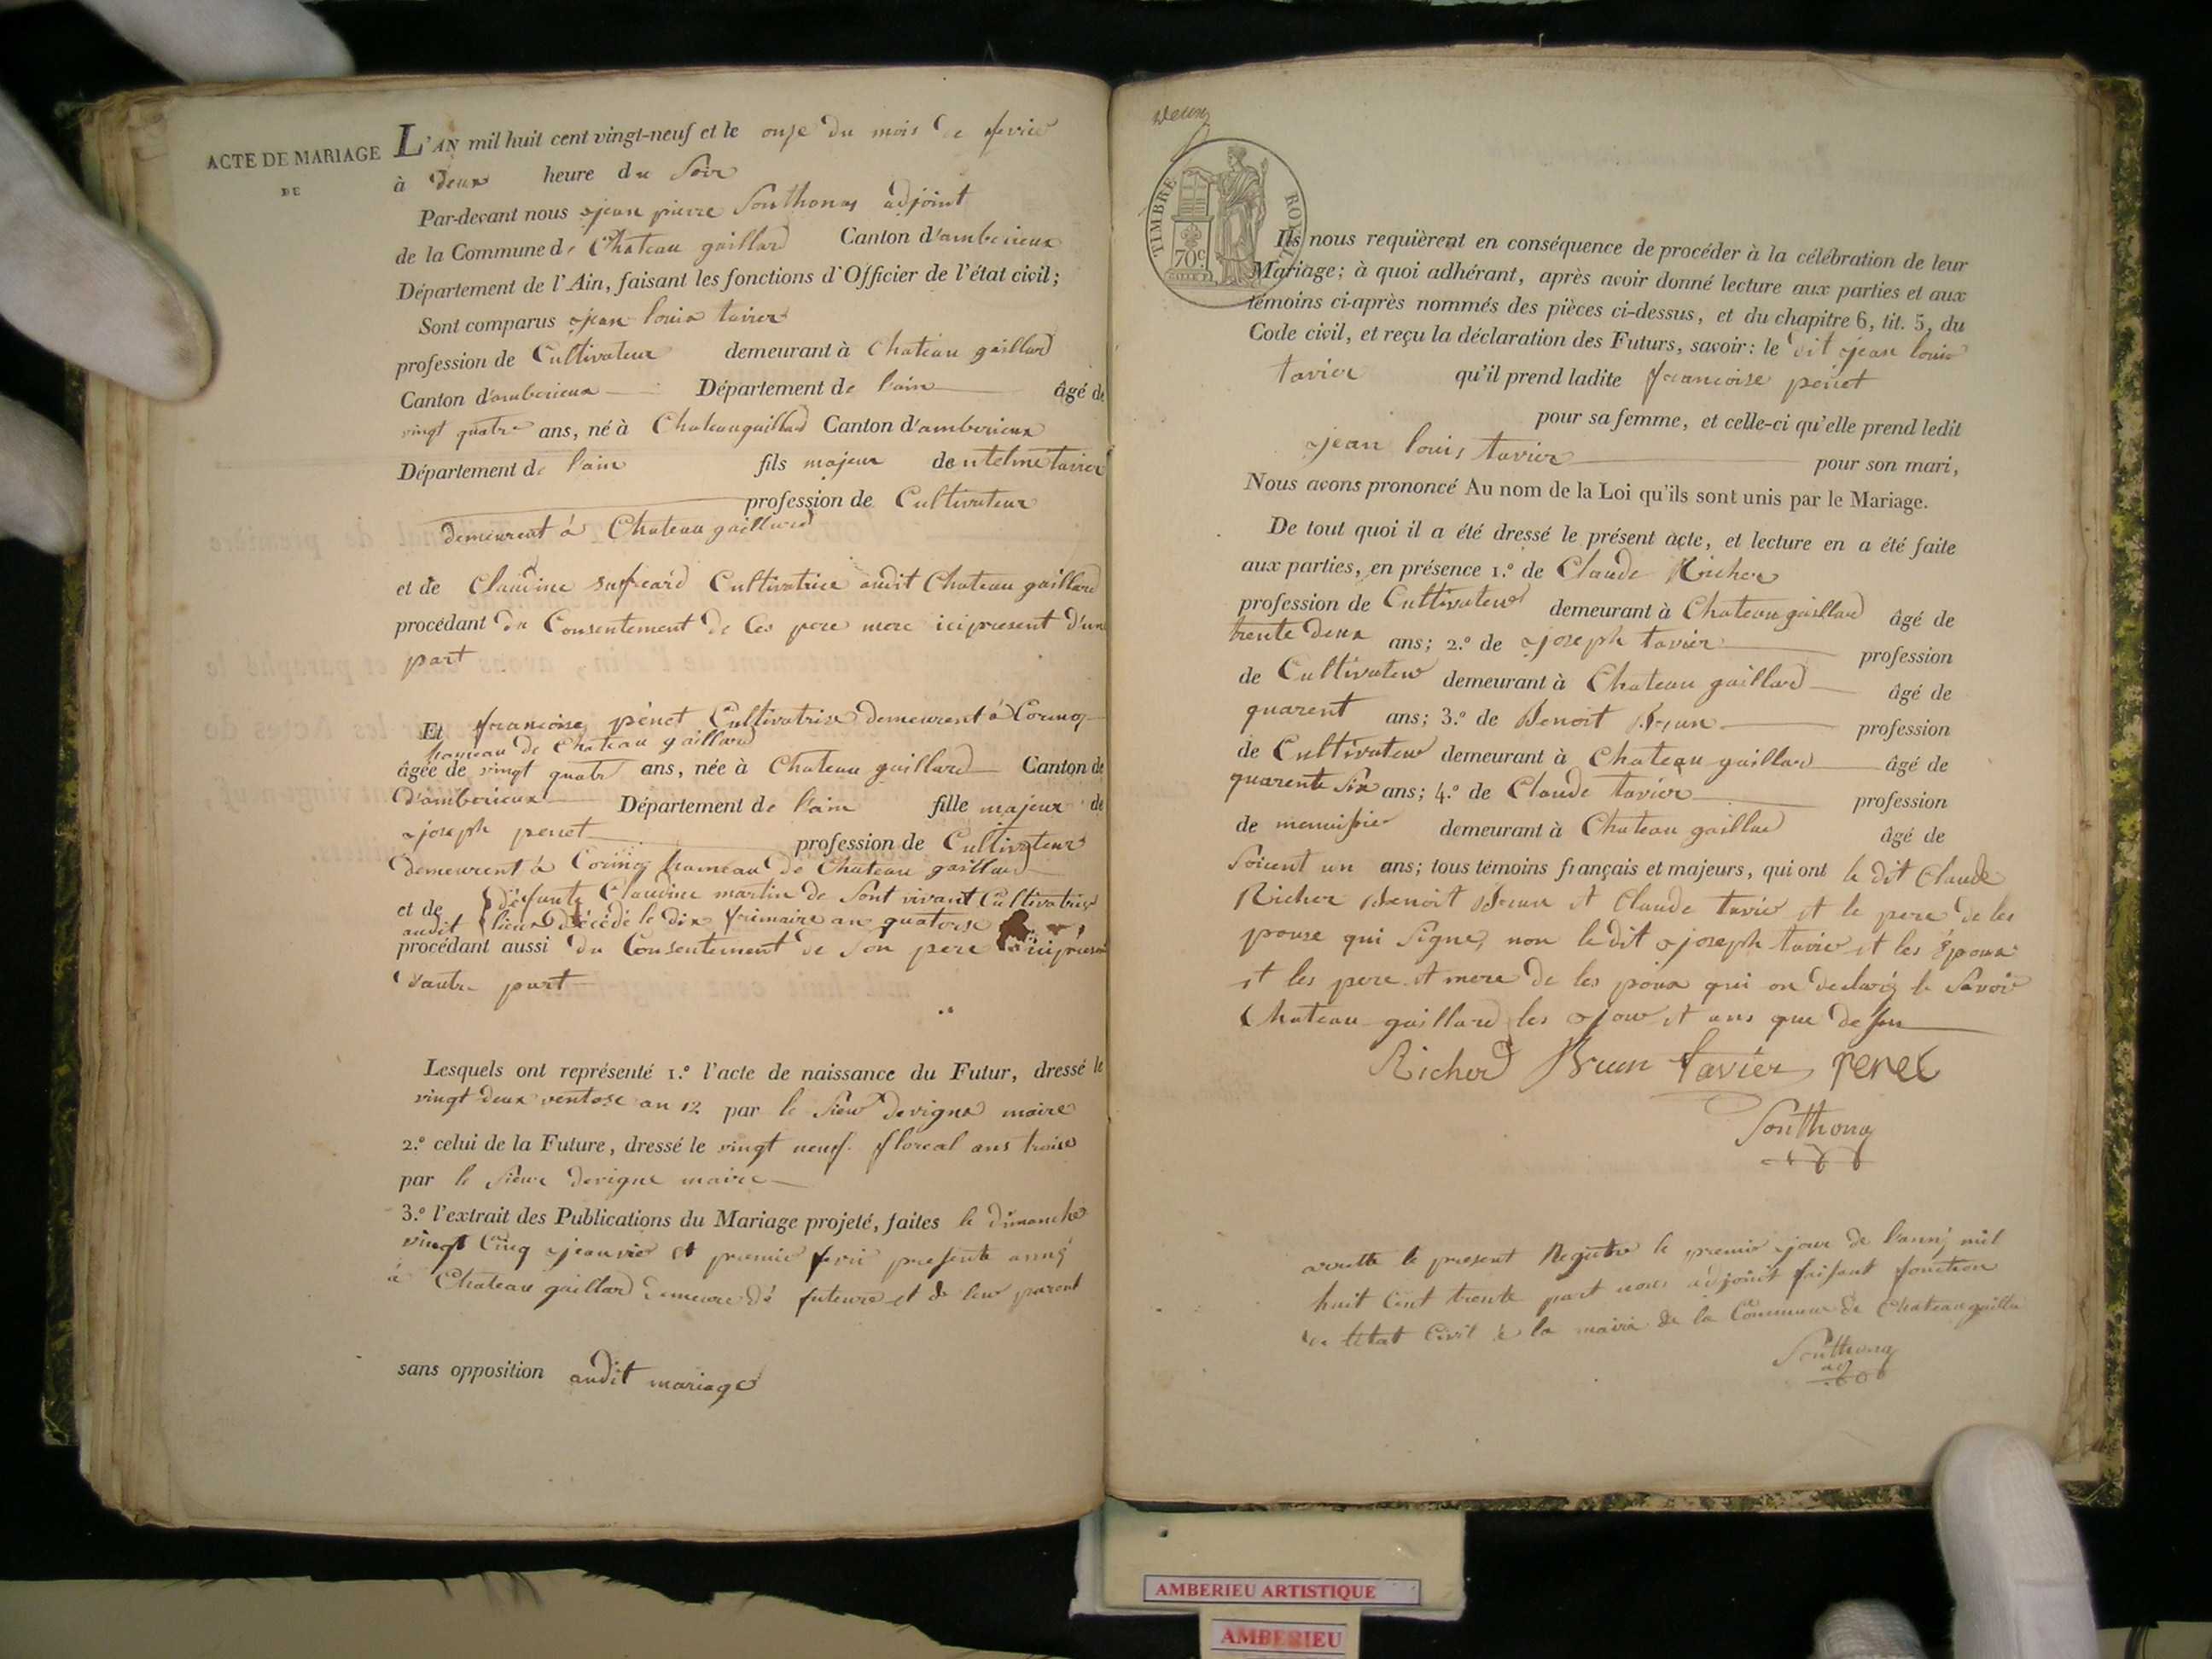 ACTE DE MARIAGE
DE
L'AN mil huit cent vingt-neuf et le onze du mois de fevrier
à deux heure du Soir
Par-devant nous jean pierre Southonas adjoint
de la Commune de Chateau gaillard Canton d'amberieux
Département de l'Ain, faisant les fonctions d'Officier de l'état civil;
Sont comparus jean louis tavier
profession de Cultivateur demeurant à Chateau gaillard
Canton d'amberieux Département de l'ain âgé de
vingt quatre ans, né à Chateaugaillard Canton d'amberieux
Département de l'ain fils majeur de tavier
profession de Cultivateur
demeurent à Chateau gaillard
et de Claudine Cultivatrice audit Chateau gaillard
procédant du Consentement de Ces pere mere ici present d'une
part
Et francoise penet Cultivatrise demeurent à
hameau de Chateau gaillard
âgée de vingt quatre ans, née à Chateau gaillard Canton de
d'amberieux Département de l'ain fille majeur de
joseph penet profession de Cultivateur
demeurent à hameau de Chateau gaillard
et de défunte Claudine martin de Sont vivant Cultivatrise
audit lieu décédé le dix frimaire an quatorse
procédant aussi du Consentement de Son pere ici present
d'autre part
Lesquels ont représenté 1.º l'acte de naissance du Futur, dressé le
vingt deux ventose an 12 par le Sieur devigne maire
2.º celui de la Future, dressé le vingt neuf floreal ans treise
par le Sieur devigne maire
3.º l'extrait des Publications du Mariage projeté, faites le dimanche
vingt Cinq jeanvier et premier fevri presente anné
à Chateau gaillard demeure dé futeure et de leur parent
sans opposition audit mariage
deux
TIMBRE ROYAL
70c
Ils nous requièrent en conséquence de procéder à la célébration de leur
Mariage; à quoi adhérant, après avoir donné lecture aux parties et aux
témoins ci-après nommés des pièces ci-dessus, et du chapitre 6, tit. 5, du
Code civil, et reçu la déclaration des Futurs, savoir: le dit jean louis
tavier qu'il prend ladite francoise penet
pour sa femme, et celle-ci qu'elle prend ledit
jean louis tavier pour son mari,
Nous avons prononcé Au nom de la Loi qu'ils sont unis par le Mariage.
De tout quoi il a été dressé le présent acte, et lecture en a été faite
aux parties, en présence 1.º de Claude Richer
profession de Cultivateur demeurant à Chateau gaillard âgé de
trente deux ans; 2.º de joseph tavier profession
de Cultivateur demeurant à Chateau gaillard âgé de
quarent ans; 3.º de Benoit Brun profession
de Cultivateur demeurant à Chateau gaillard âgé de
quarente six ans; 4.º de Claude tavier profession
de menuisier demeurant à Chateau gaillard âgé de
Soisent un ans; tous témoins français et majeurs, qui ont le dit Claude
Richer Benoit Brun et Claude tavier et le pere de les
pouse qui Signe, non le dit joseph tavier et les époux
et les pere et mere de les poux qui on declaré le Savoir
Chateau gaillard les jour et ans que dessu
Richerd Brun tavier penet
Southonas
arrette le present Registre le premier jour de l'anné mil
huit Cent trente part nous adjoint faisant fonction
de letat Civil à la mairie de la Commune de Chateaugailla
Southonas
adj
AMBERIEU ARTISTIQUE
AMBERIEU